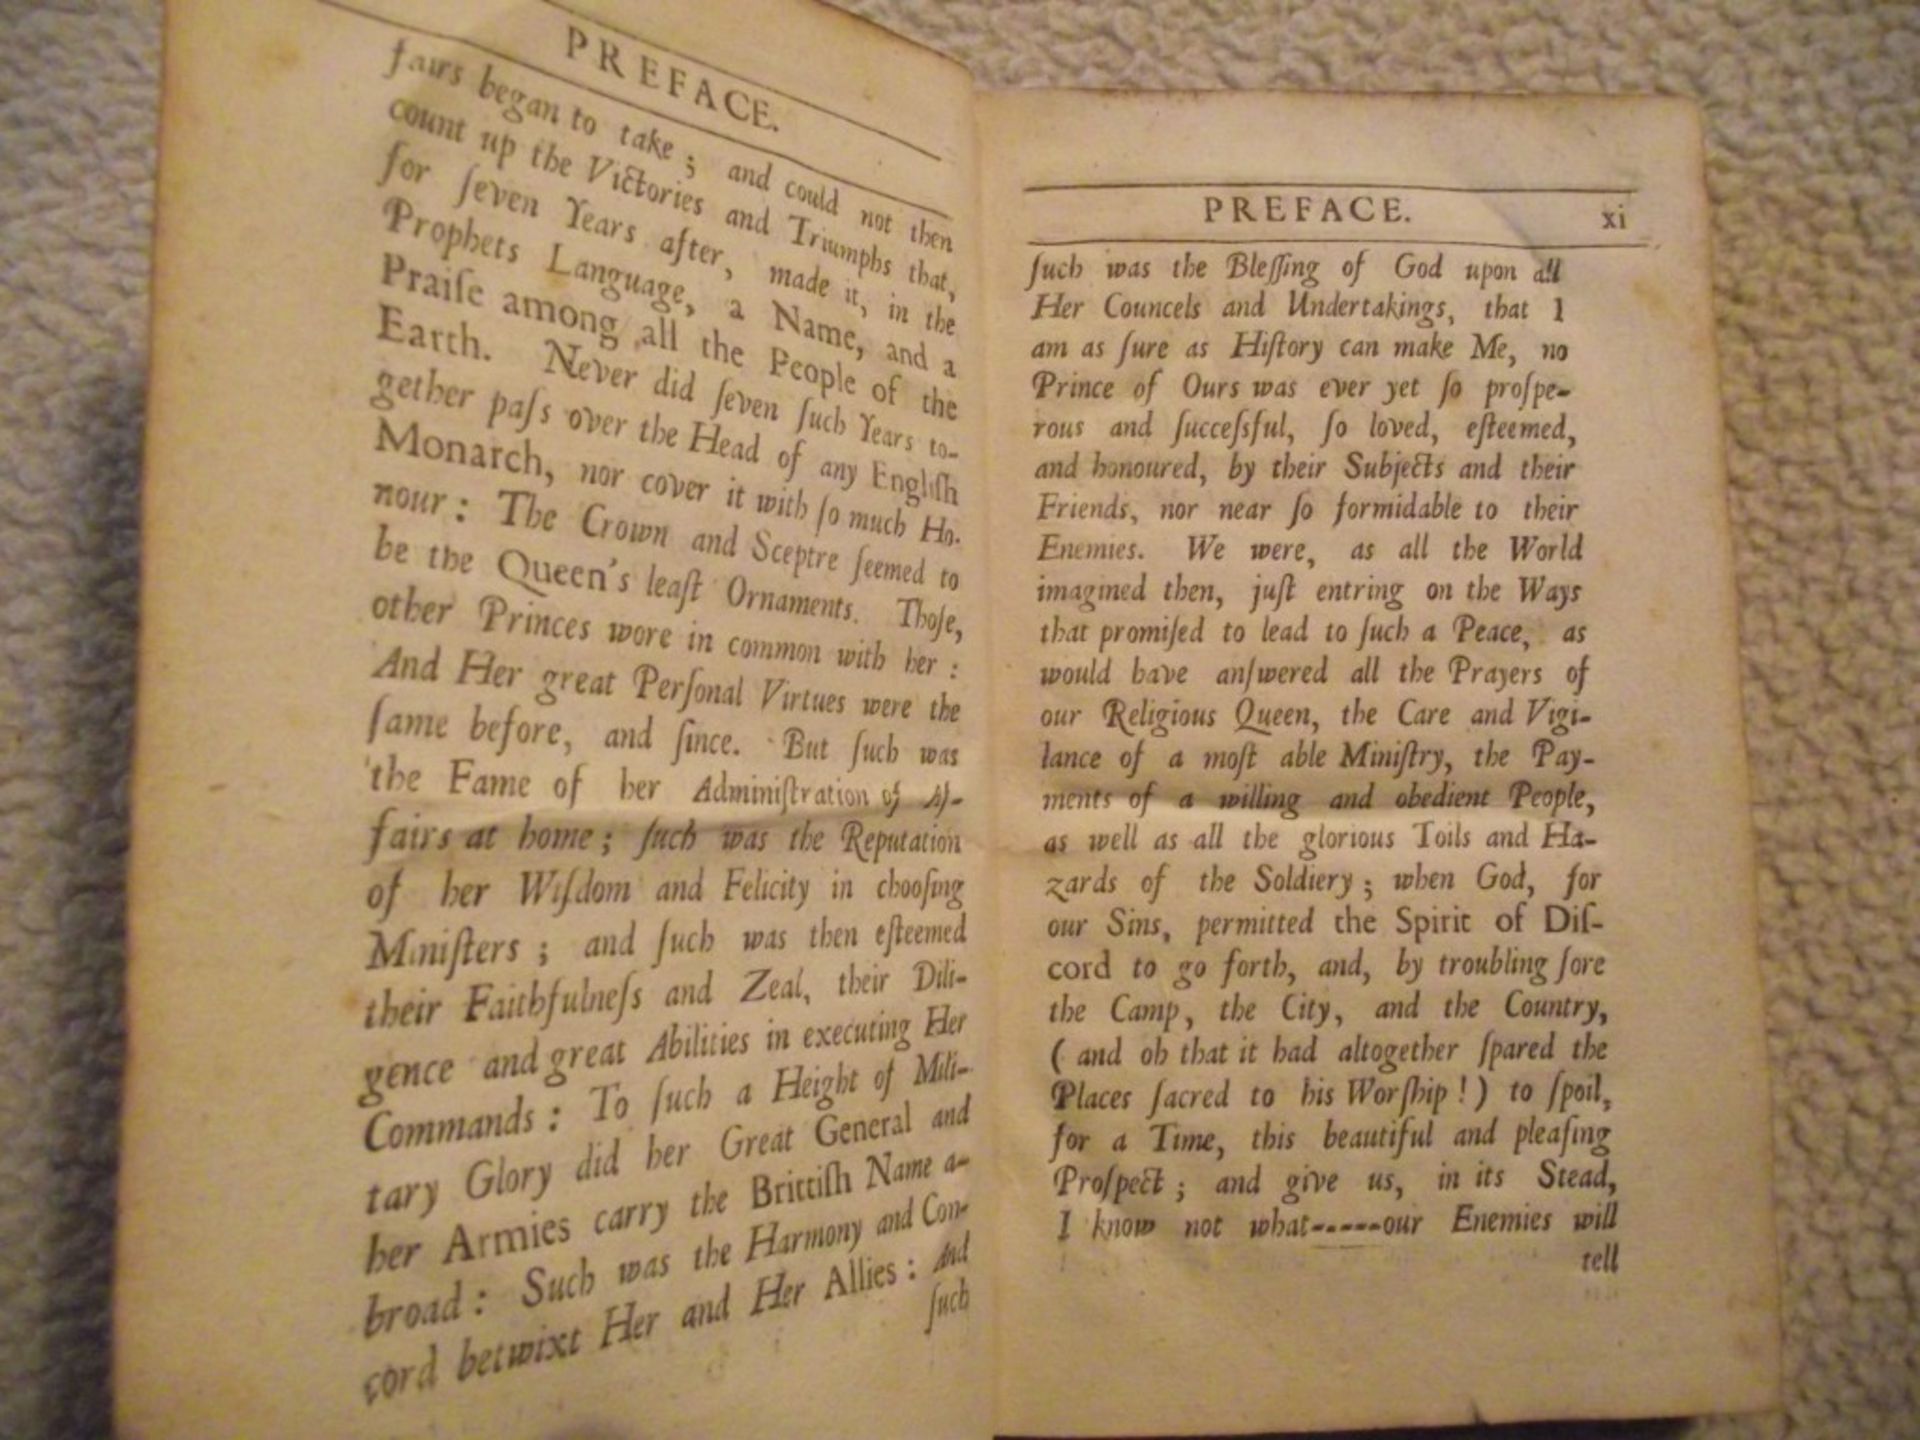 PREFACE.
fairs began to take; and could not then
count up the Victories and Triumphs that,
for ſeven Years after, made it, in the
Prophets Language, a Name, and a
Praiſe among all the People of the
Earth. Never did ſeven ſuch Years to-
gether paſs over the Head of any Engliſh
Monarch, nor cover it with ſo much Ho-
nour: The Crown and Sceptre ſeemed to
be the Queen's leaſt Ornaments. Thoſe,
other Princes wore in common with her:
And Her great Perſonal Virtues were the
ſame before, and ſince. But ſuch was
the Fame of her Adminiſtration of Af-
fairs at home; ſuch was the Reputation
of her Wiſdom and Felicity in chooſing
Miniſters; and ſuch was then eſteemed
their Faithfulneſs and Zeal, their Dili-
gence and great Abilities in executing Her
Commands: To ſuch a Height of Mili-
tary Glory did her Great General and
her Armies carry the Brittiſh Name a-
broad: Such was the Harmony and Con-
cord betwixt Her and Her Allies: And
ſuch
PREFACE. xi
ſuch was the Bleſſing of God upon all
Her Councels and Undertakings, that I
am as ſure as Hiſtory can make Me, no
Prince of Ours was ever yet ſo proſpe-
rous and ſucceſsful, ſo loved, eſteemed,
and honoured, by their Subjects and their
Friends, nor near ſo formidable to their
Enemies. We were, as all the World
imagined then, juſt entring on the Ways
that promiſed to lead to ſuch a Peace, as
would have anſwered all the Prayers of
our Religious Queen, the Care and Vigi-
lance of a moſt able Miniſtry, the Pay-
ments of a willing and obedient People,
as well as all the glorious Toils and Ha-
zards of the Soldiery; when God, for
our Sins, permitted the Spirit of Diſ-
cord to go forth, and, by troubling ſore
the Camp, the City, and the Country,
(and oh that it had altogether ſpared the
Places ſacred to his Worſhip!) to ſpoil,
for a Time, this beautiful and pleaſing
Proſpect; and give us, in its Stead,
I know not what-----our Enemies will
tell